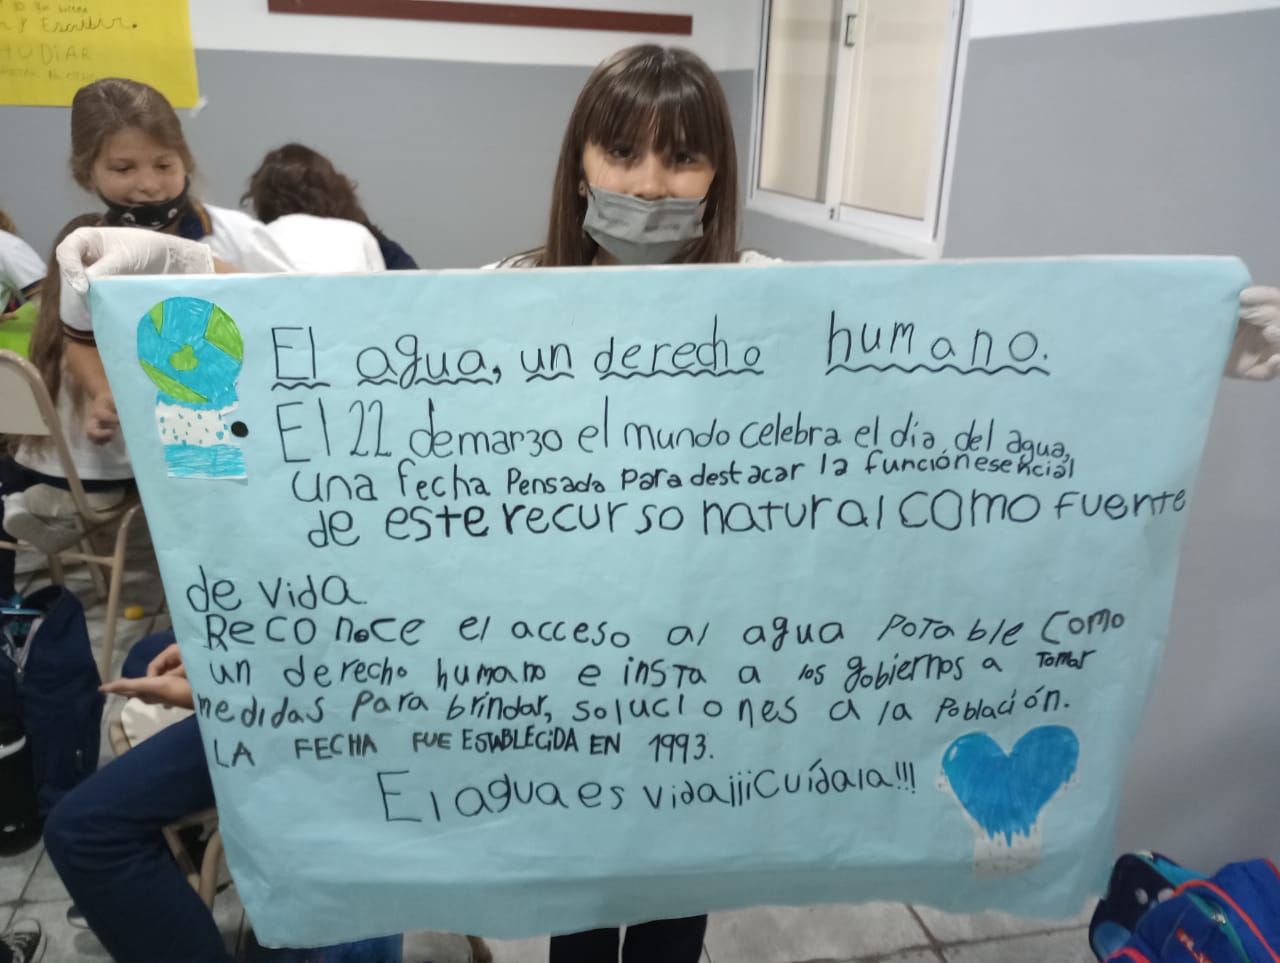 y Escribir.
TUDiAR
El agua, un derecho humano.
El 22 de marzo el mundo celebra el día del agua,
una fecha Pensada para destacar la función esencial
de este recurso natural como fuente
de vida.
Reconoce el acceso al agua potable como
un derecho humano e insta a los gobiernos a tomar
medidas para brindar, soluciones a la población.
LA FECHA FUE ESTABLECiDA EN 1993.
El agua es vida¡¡¡Cuídala!!!